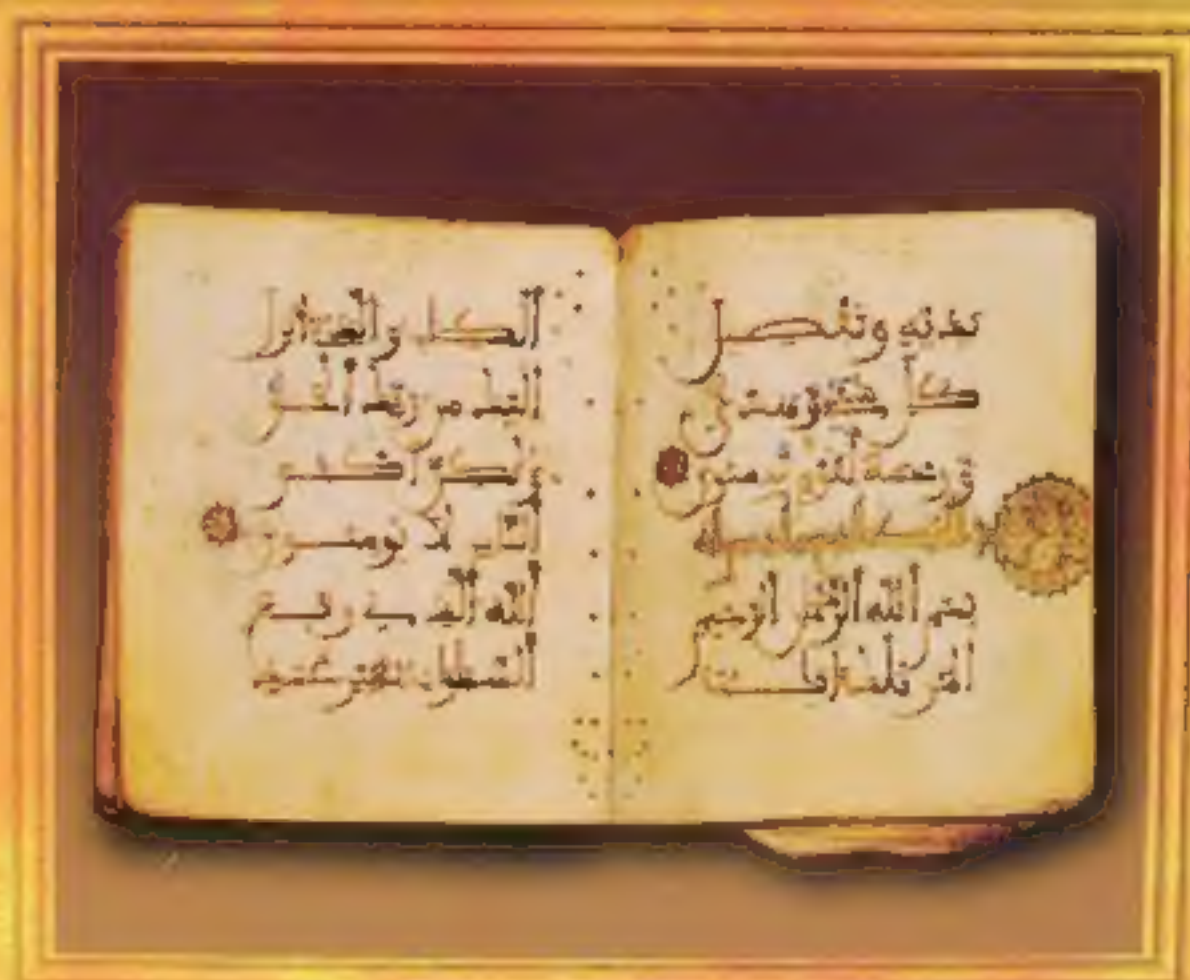 يديه وتفصيل
كل شيء وهدى
ورحمة لقوم يومنون
بسم الله الرحمن الرحيم
المر تلك ايات
الكتب والذي انزل
اليك من ربك الحق
ولكن اكثر
الناس لا يومنون
الله الذي رفع
السموات بغير عمد